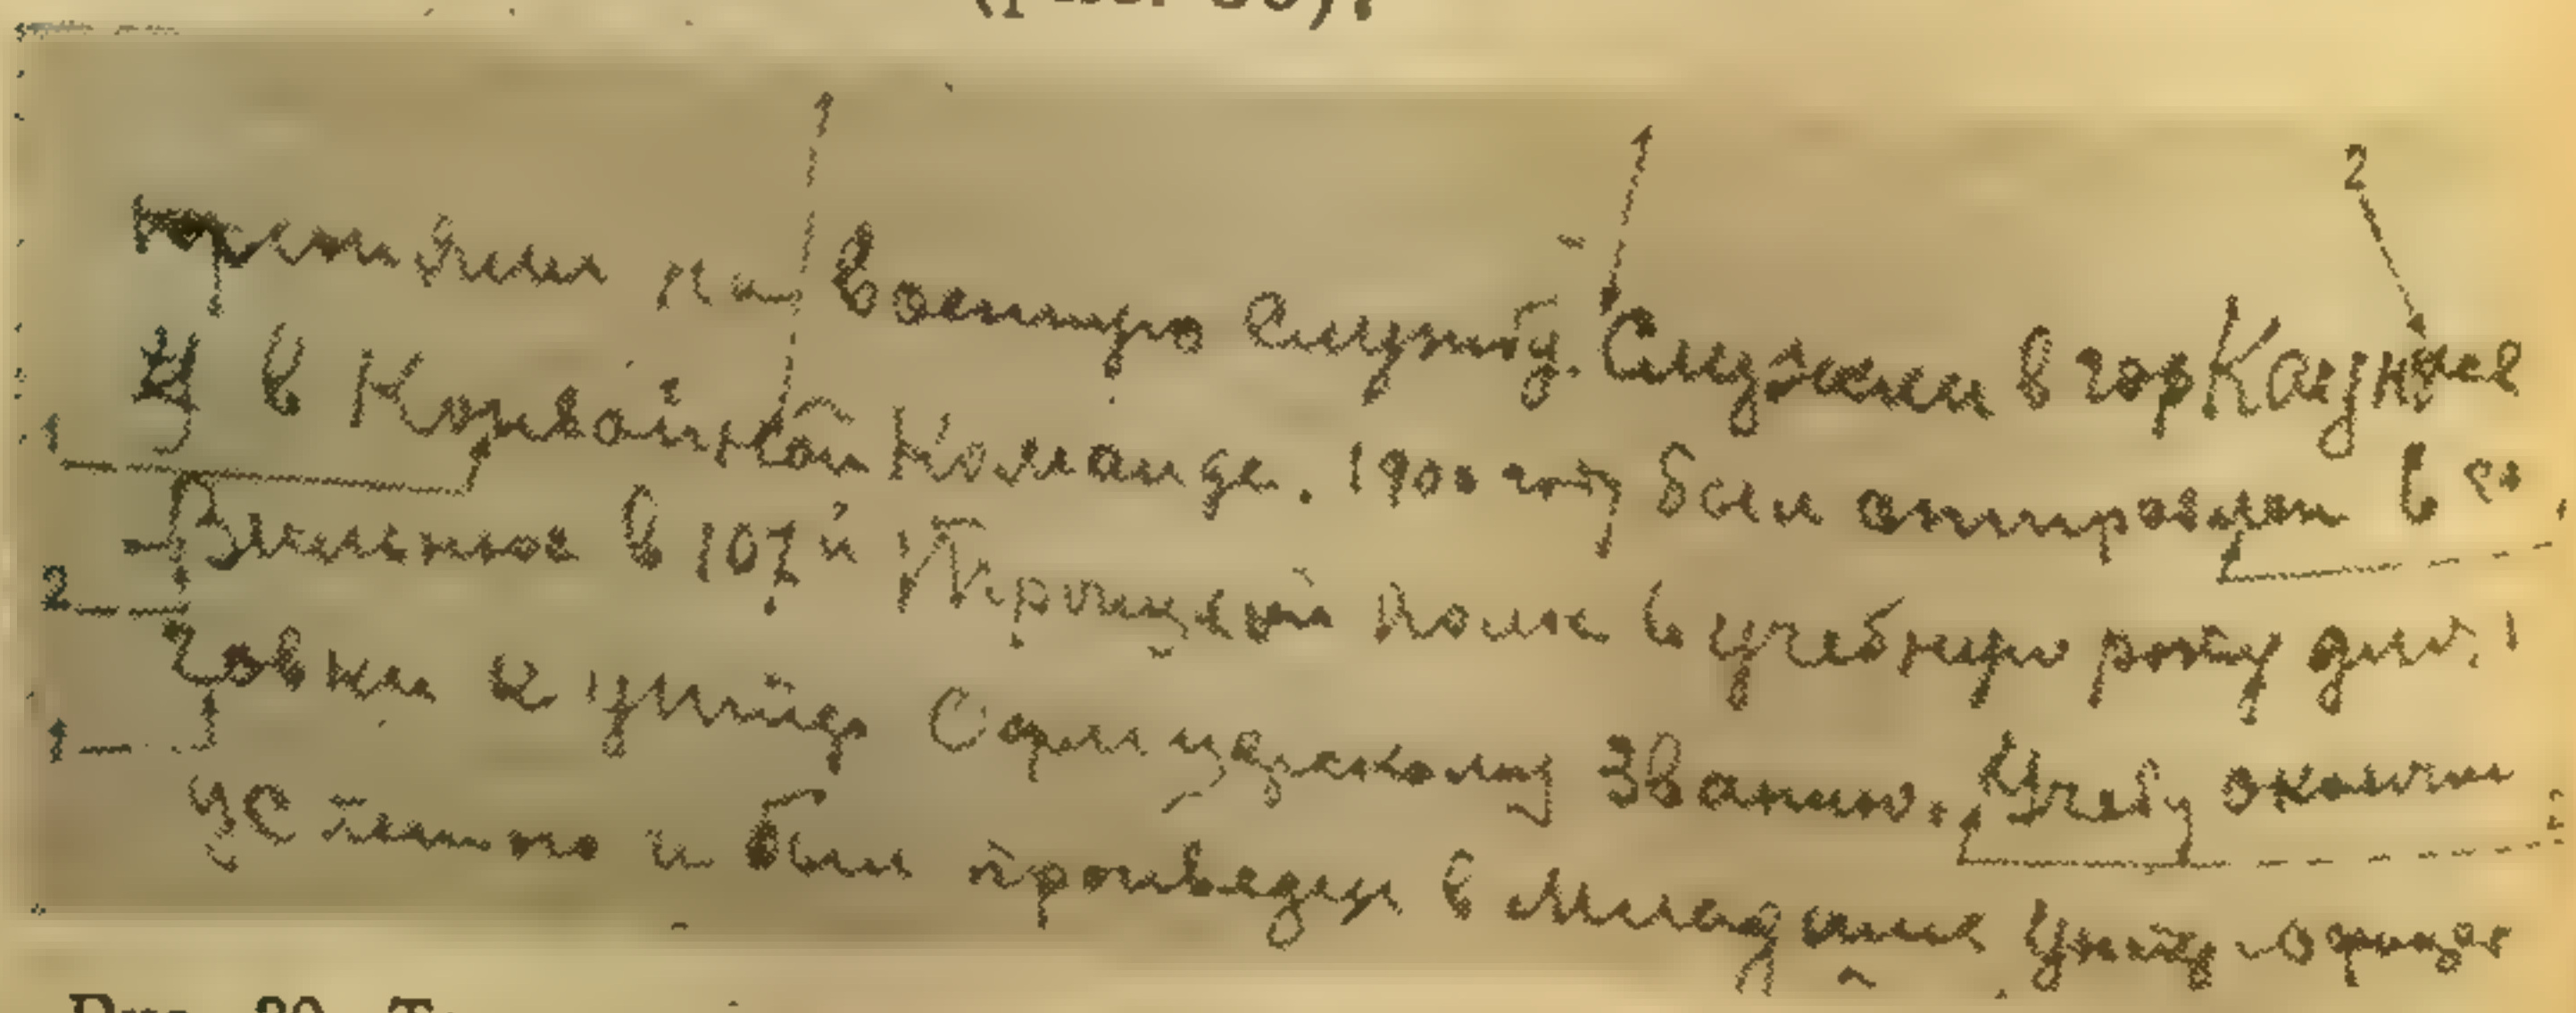 на военную службу. Служил в гор Каунасе
в Конвойной Команде. 1900 году был отправлен в го
Вильнюс в 107й Троицкий полк в учебную роту для
товки к унтер Офицерскому Званию. Учебу окончил
успешно и был произведен в Младшие Унтер-офицер
Рис. 30.